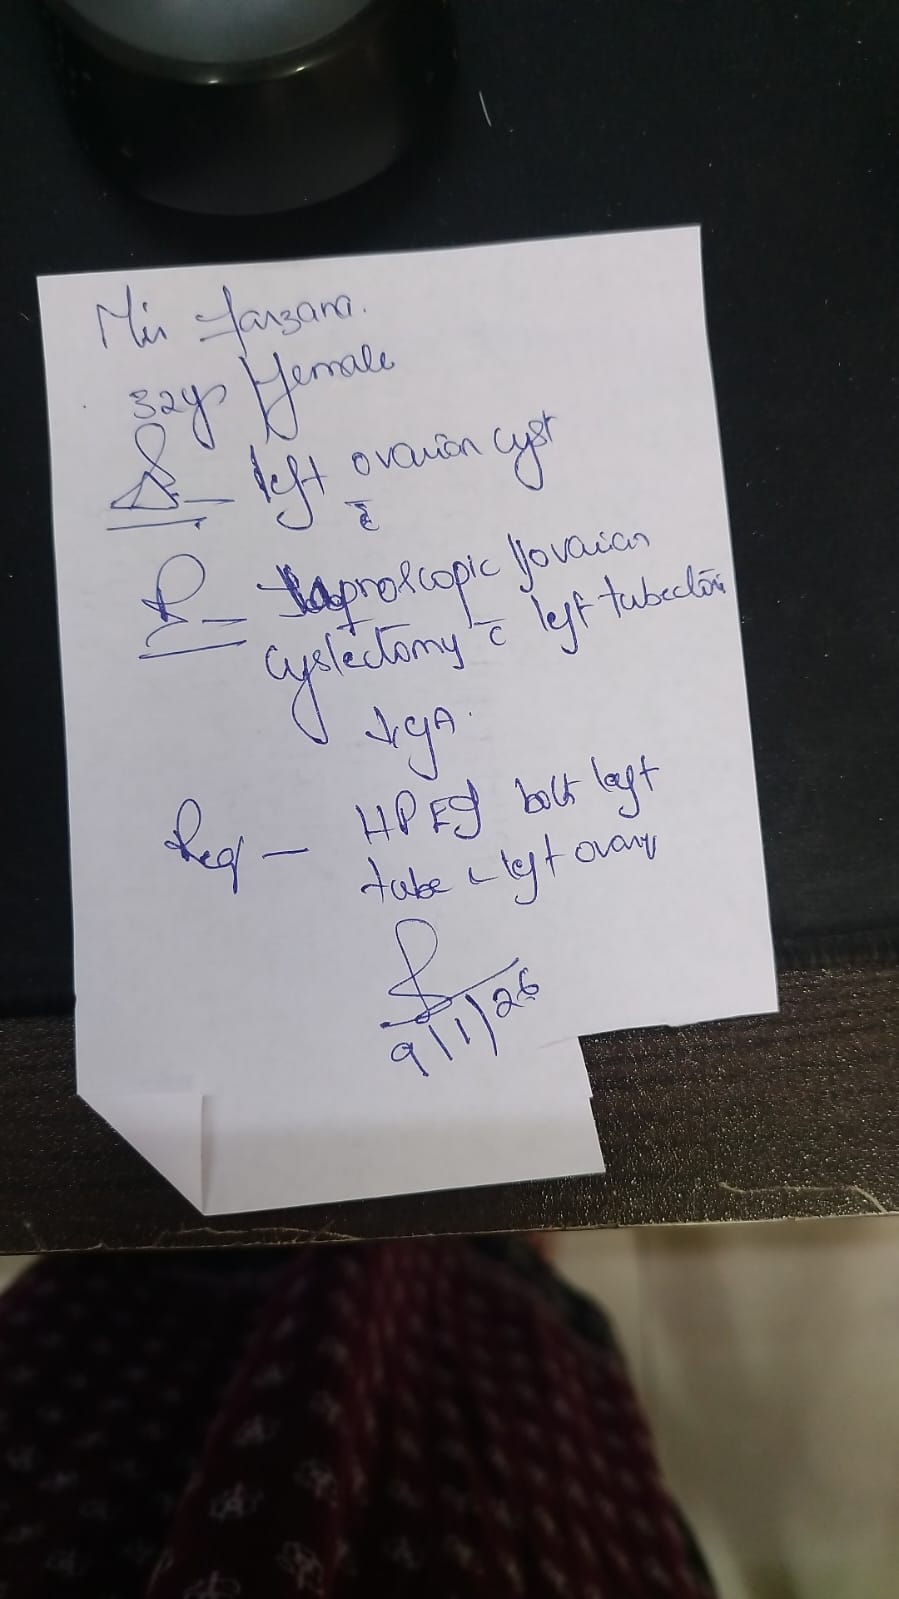 Mis Farzana.
32y/Female
Δ - left ovarian cyst
c̄
P - Laproscopic ovarian
cystectomy c̄ left tubectomy
↓ GA.
Req - HPE of both left
tube & left ovary
9/1/26